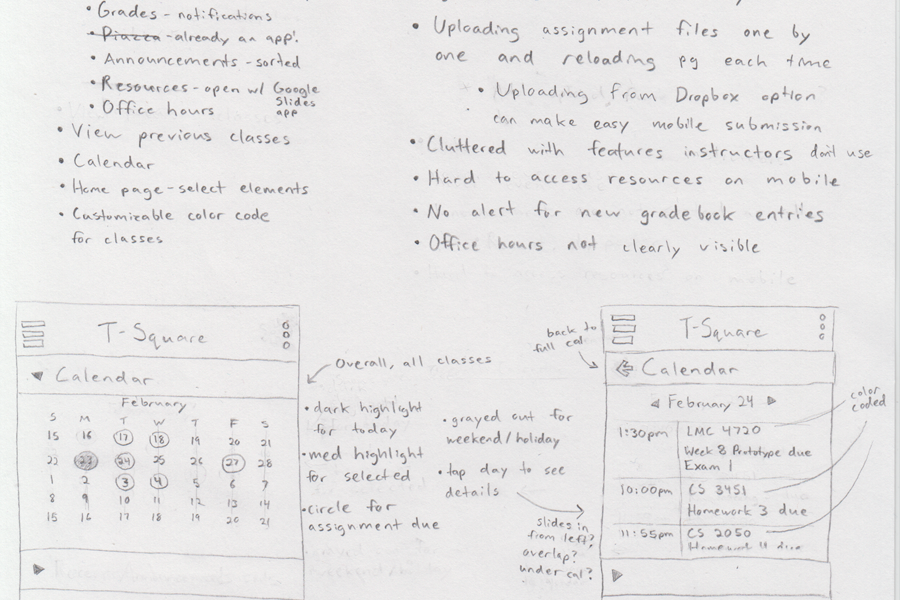 • Grades - notifications
• Piazza - already an app!
• Announcements - sorted
• Resources - open w/ Google
Slides
app
• Office hours
• View previous classes
• Calendar
• Home page - select elements
• Customizable color code
for classes
• Uploading assignment files one by
one and reloading pg each time
• Uploading from Dropbox option
can make easy mobile submission
• Cluttered with features instructors don't use
• Hard to access resources on mobile
• No alert for new gradebook entries
• Office hours not clearly visible
T-Square
Calendar
February
S M T W T F S
15 16 17 18 19 20 21
22 23 24 25 26 27 28
1 2 3 4 5 6 7
8 9 10 11 12 13 14
15 16 17 18 19 20 21
Overall, all classes
• dark highlight
for today
• med highlight
for selected
• circle for
assignment due
• grayed out for
weekend/holiday
• tap day to see
details
slides in
from left?
overlap?
under cal?
back to
full cal
T-Square
Calendar
February 24
color
coded
1:30pm LMC 4720
Week 8 Prototype due
Exam 1
10:00pm CS 3451
Homework 3 due
11:55pm CS 2050
Homework due